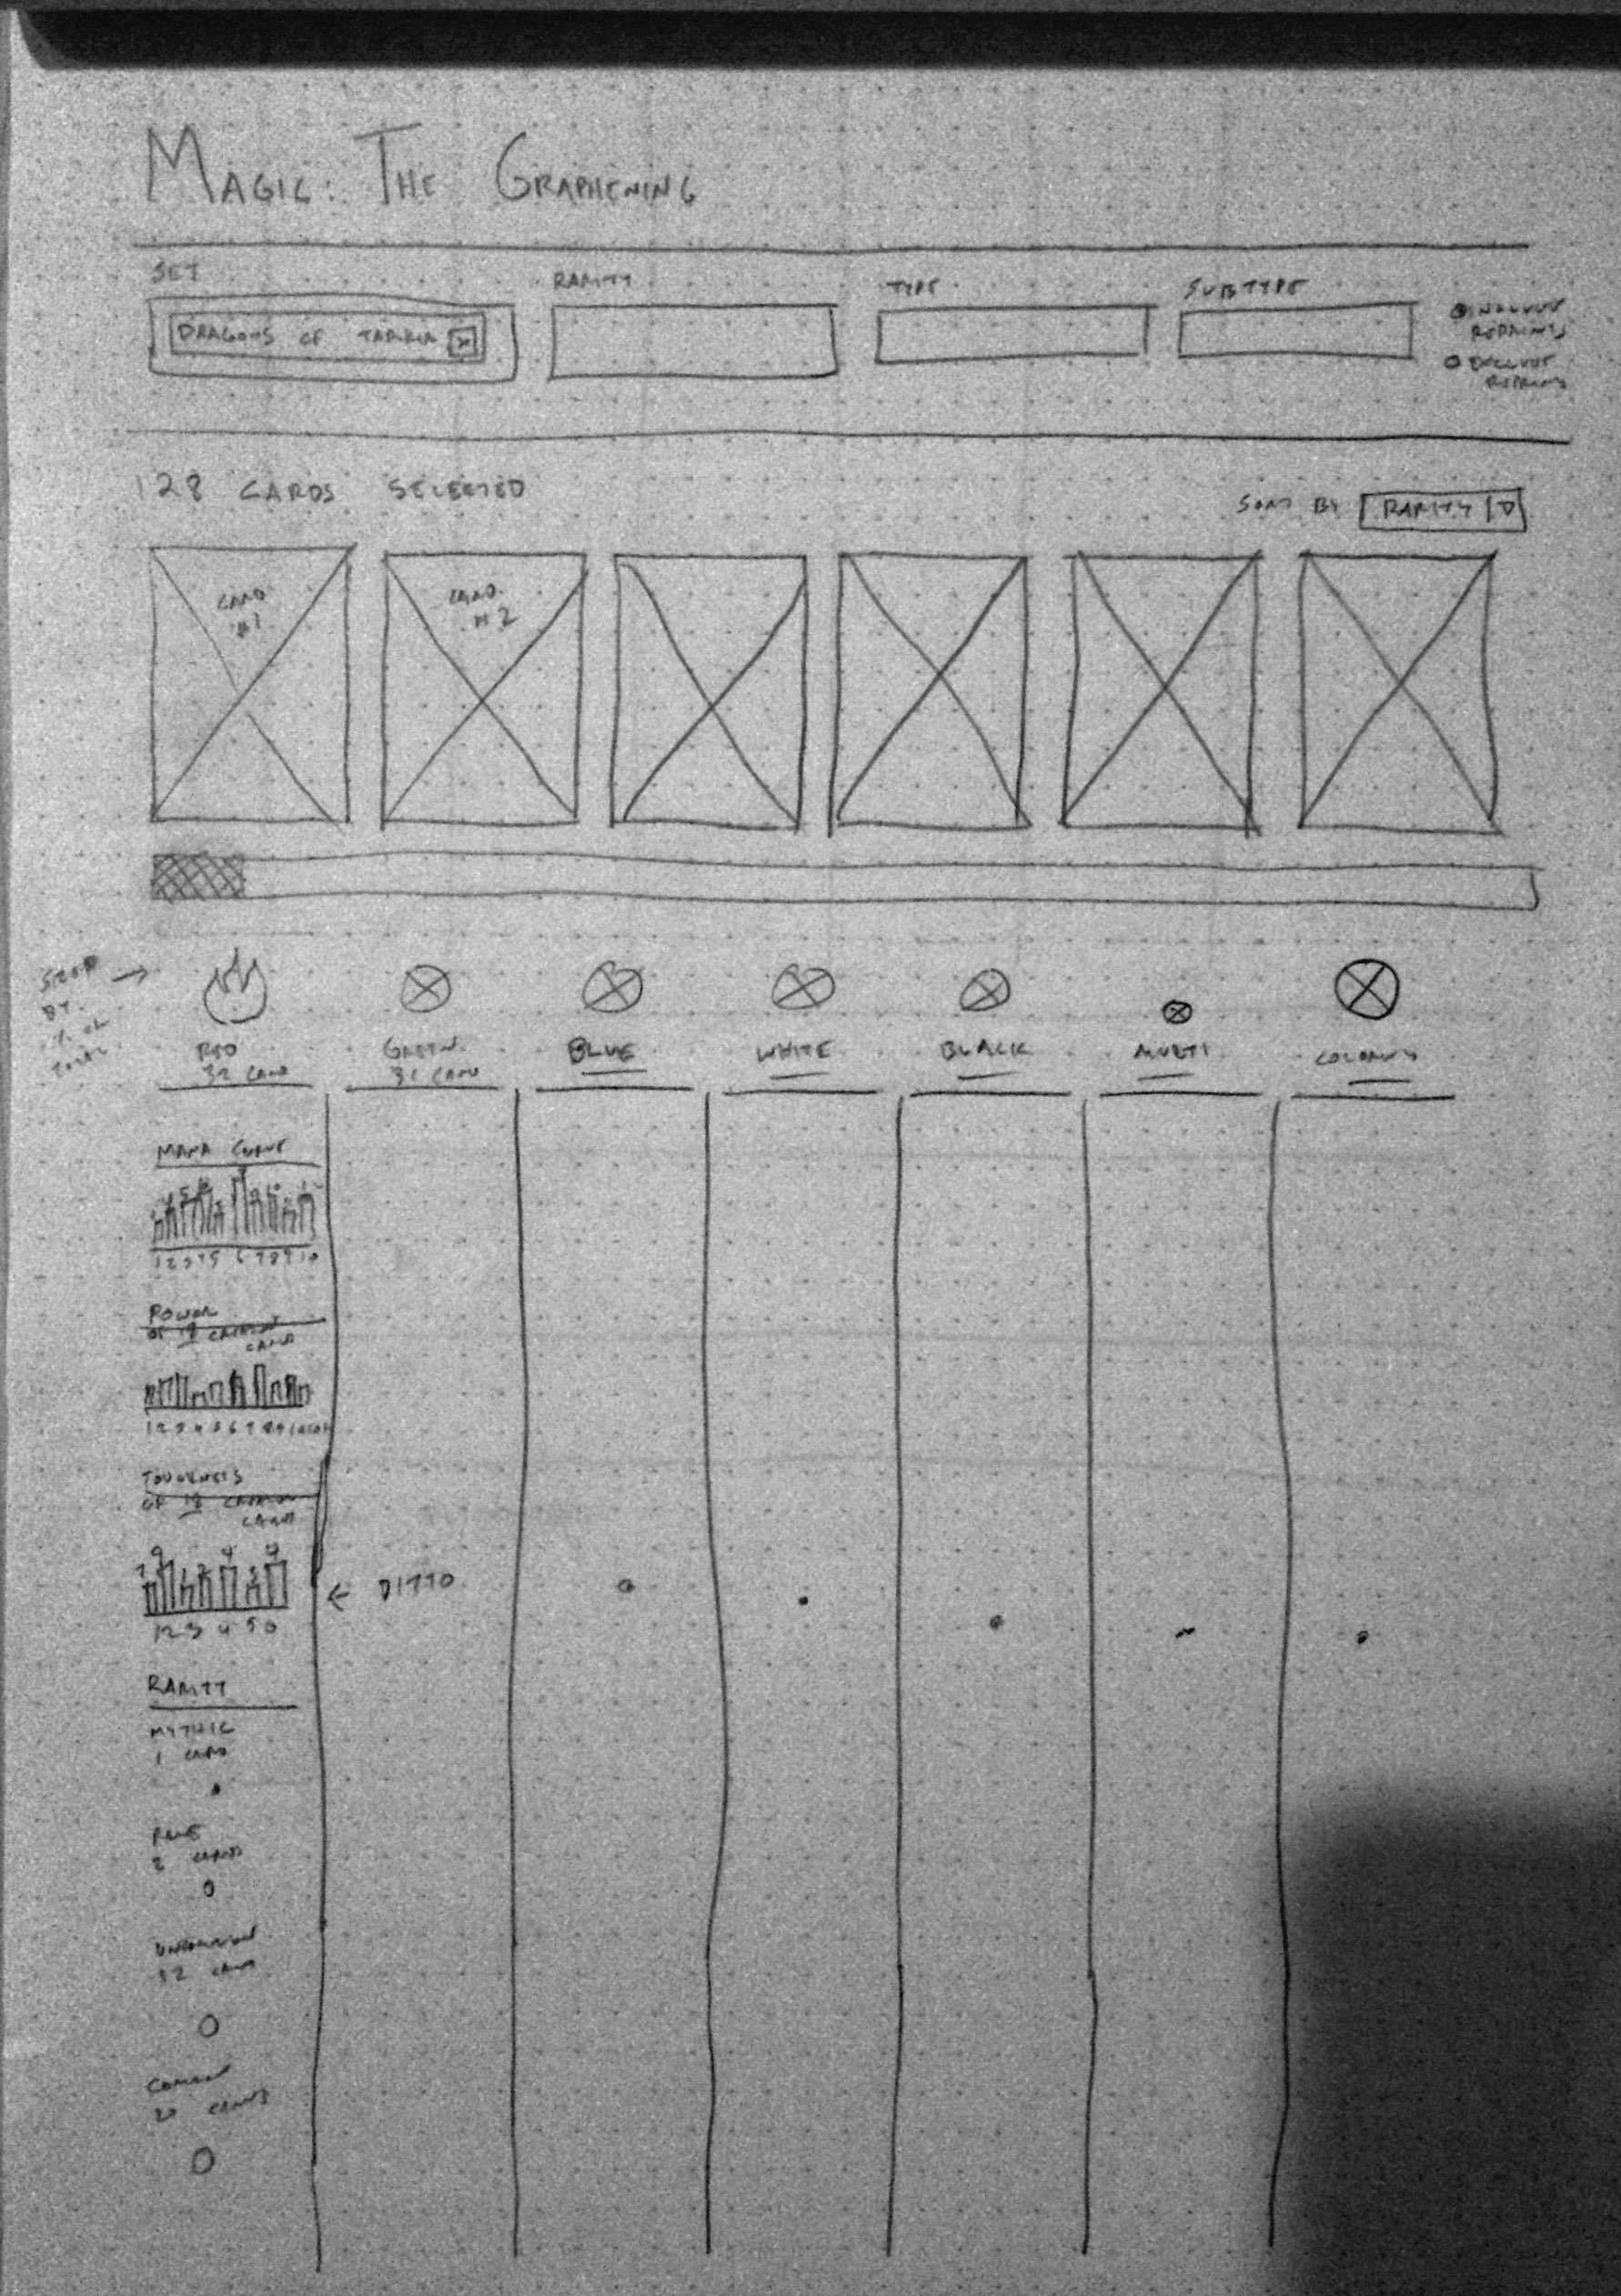 MAGIC: THE GRAPHENING
SET
RARITY
TYPE
SUBTYPE
DRAGONS OF TARKIR x
INCLUDE
REPRINTS
EXCLUDE
REPRINTS
128 CARDS SELECTED
SORT BY RARITY
CARD
#1
CARD
#2
BY
% OF
TOTAL
RED
32 CARD
GREEN
31 CARD
BLUE
WHITE
BLACK
MULTI
COLORLESS
MANA CURVE
1 2 3 4 5 6 7 8 9 10
POWER
OF 18 CREATURE
CARDS
TOUGHNESS
OF 18 CREATURE
CARDS
← DITTO
1 2 3 4 5 6
RARITY
MYTHIC
1 CARD
RARE
2 CARDS
UNCOMMON
12 CARDS
COMMON
20 CARDS